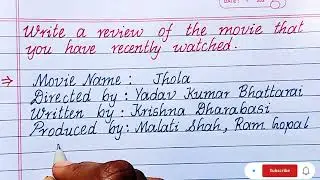 Write a review of the movie that
you have recently watched.
⇒ Movie Name : Jhola
Directed by : Yadav Kumar Bhattarai
Written by : Krishna Dharabasi
Produced by : Malati Shah, Ram Gopal
Subscribe